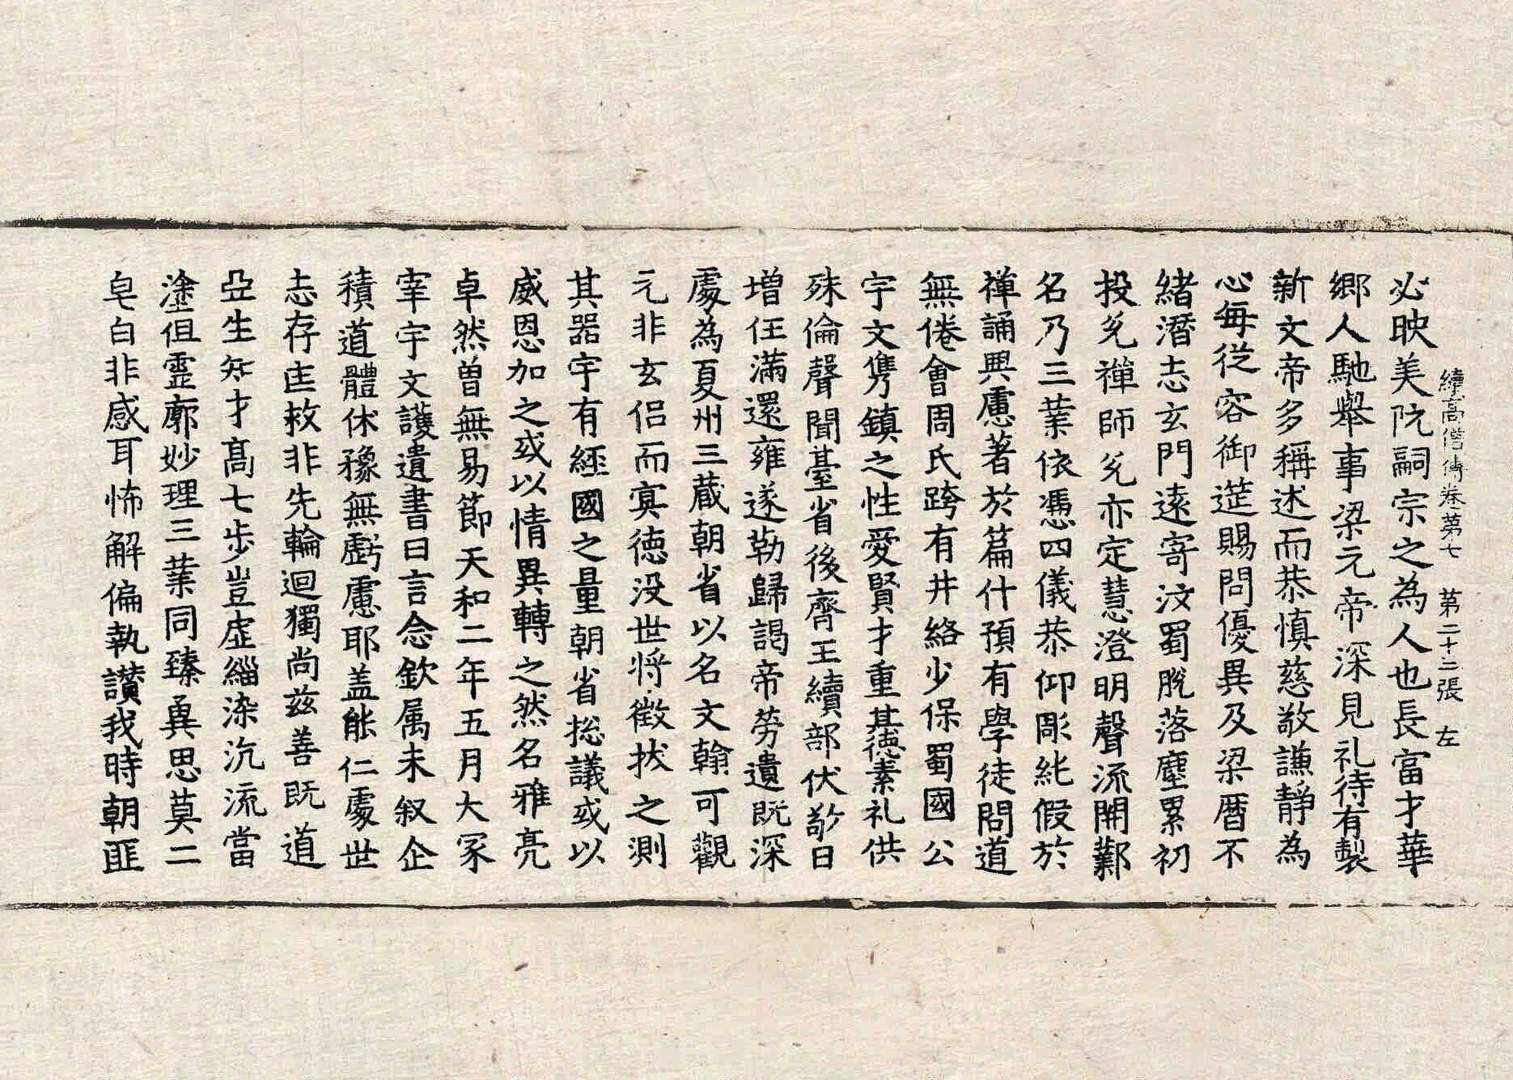 續高僧傳卷第七　第二十二張　左
必映美阮嗣宗之為人也長富才華
鄉人馳舉事梁元帝深見礼待有製
新文帝多稱述而恭慎慈敬謙靜為
心每從容御莚賜問優異及梁曆不
緒潛志玄門遠寄汶蜀脫落塵累初
投兊禪師兊亦定慧澄明聲流開鄴
名乃三業依憑四儀恭仰彫紽假於
禪誦興慮著於篇什預有學徒問道
無倦會周氏跨有井絡少保蜀國公
宇文㑺鎮之性愛賢才重其德素礼供
殊倫聲聞臺省後齊王續部伏敬日
增任滿還雍遂勒歸謁帝勞遺既深
處為夏州三藏朝省以名文翰可觀
元非玄侶而寘德没世將徵拔之測
其器宇有經國之量朝省捴議或以
威恩加之或以情異轉之然名雅亮
卓然曾無易節天和二年五月大冢
宰宇文護遺書曰言念欽属未叙企
積道體休豫無虧慮耶盖能仁處世
志存匡救非先輪迴獨尚兹善既道
亞生知才髙七步豈虛緇染沉流當
塗但靈廓妙理三業同臻真思莫二
皂白非感耳怖解偏執讃我時朝匪